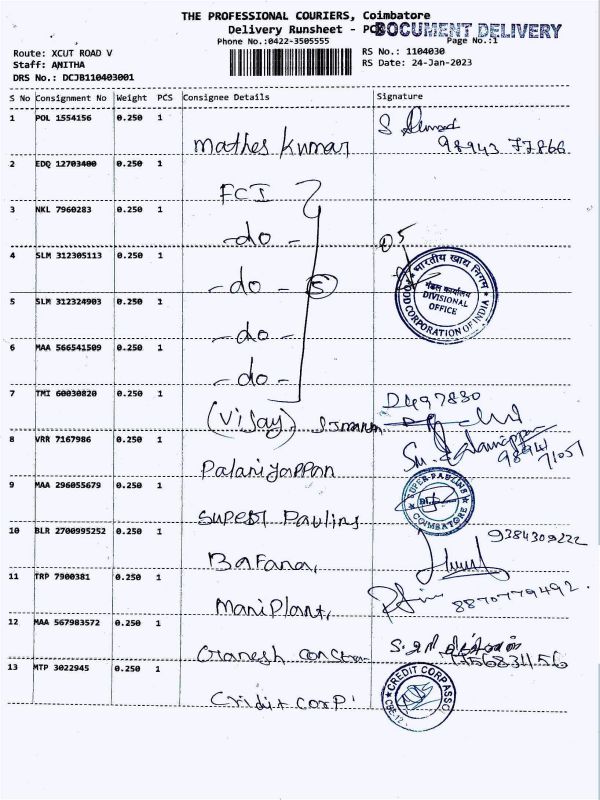 THE PROFESSIONAL COURIERS, Coimbatore
Delivery Runsheet - PCB
DOCUMENT DELIVERY
Phone No.:0422-3505555
Page No.:1
Route: XCUT ROAD V
RS No.: 1104030
Staff: AMITHA
RS Date: 24-Jan-2023
DRS No.: DCJB110403001
S No Consignment No Weight PCS Consignee Details Signature
1 POL 1554156 0.250 1
Mathes Kumar
98943 77866
2 EDQ 12703400 0.250 1
FCI
3 NKL 7960283 0.250 1
-do-
05
4 SLM 312305113 0.250 1
-do- 5
भारतीय खाद्य निगम
मंडल कार्यालय
DIVISIONAL
OFFICE
FOOD CORPORATION OF INDIA
5 SLM 312324903 0.250 1
-do-
6 MAA 566541509 0.250 1
-do-
7 TMI 60030820 0.250 1
D497830
(Vijay)
8 VRR 7167986 0.250 1
Palaniyappan
98941
71051
9 MAA 296055679 0.250 1
Super Paulins
SUPER PAULINS
COIMBATORE
10 BLR 2700995252 0.250 1
Bafana,
9384309222
11 TRP 7900381 0.250 1
Mani Plant,
8870779492.
12 MAA 567983572 0.250 1
Ganesh Constrn
13 MTP 3022945 0.250 1
Cridit Corp
CREDIT CORP ASSO
CBE-12